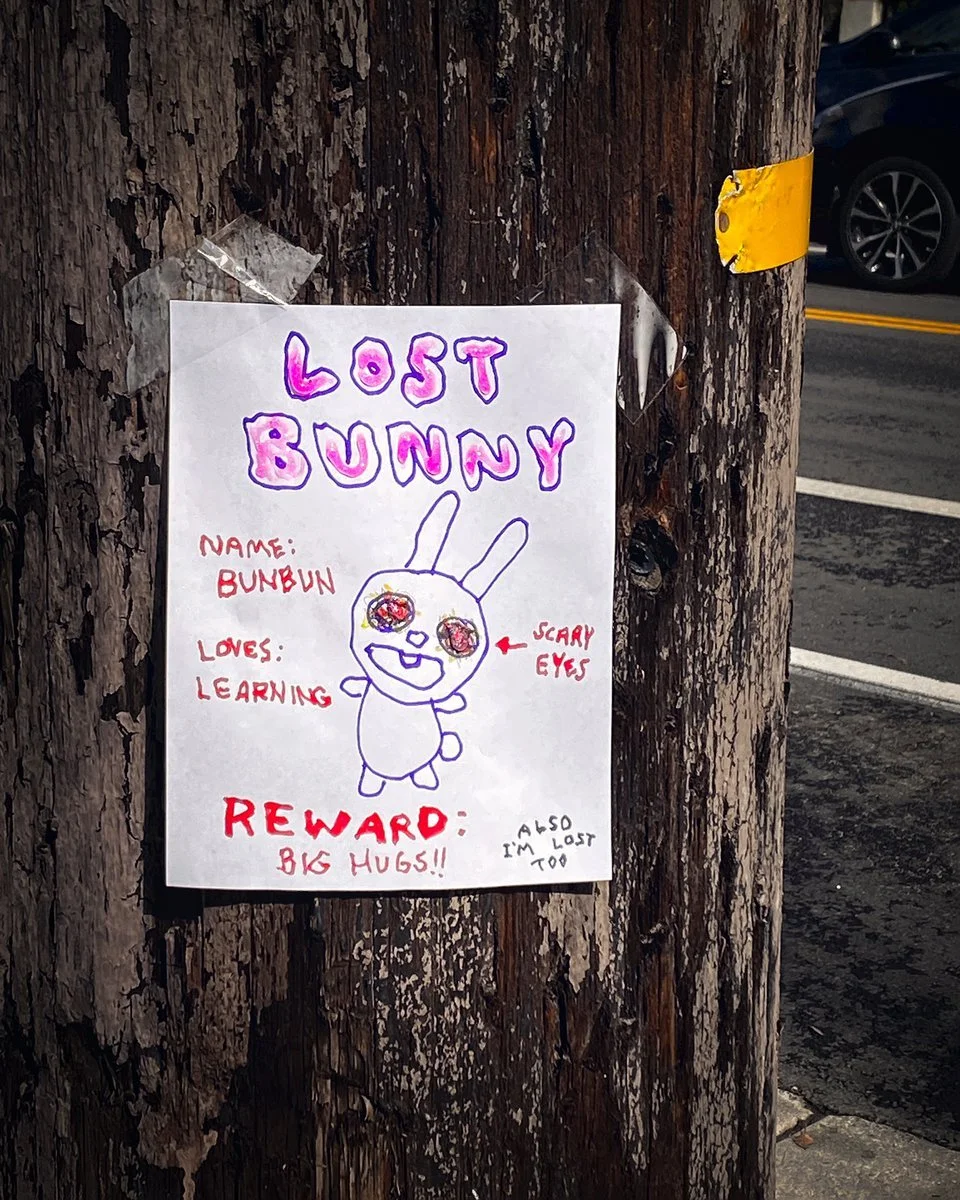 LOST
BUNNY
NAME:
BUNBUN
LOVES:
LEARNING
SCARY
EYES
REWARD:
BIG HUGS!!
ALSO
I'M LOST
TOO